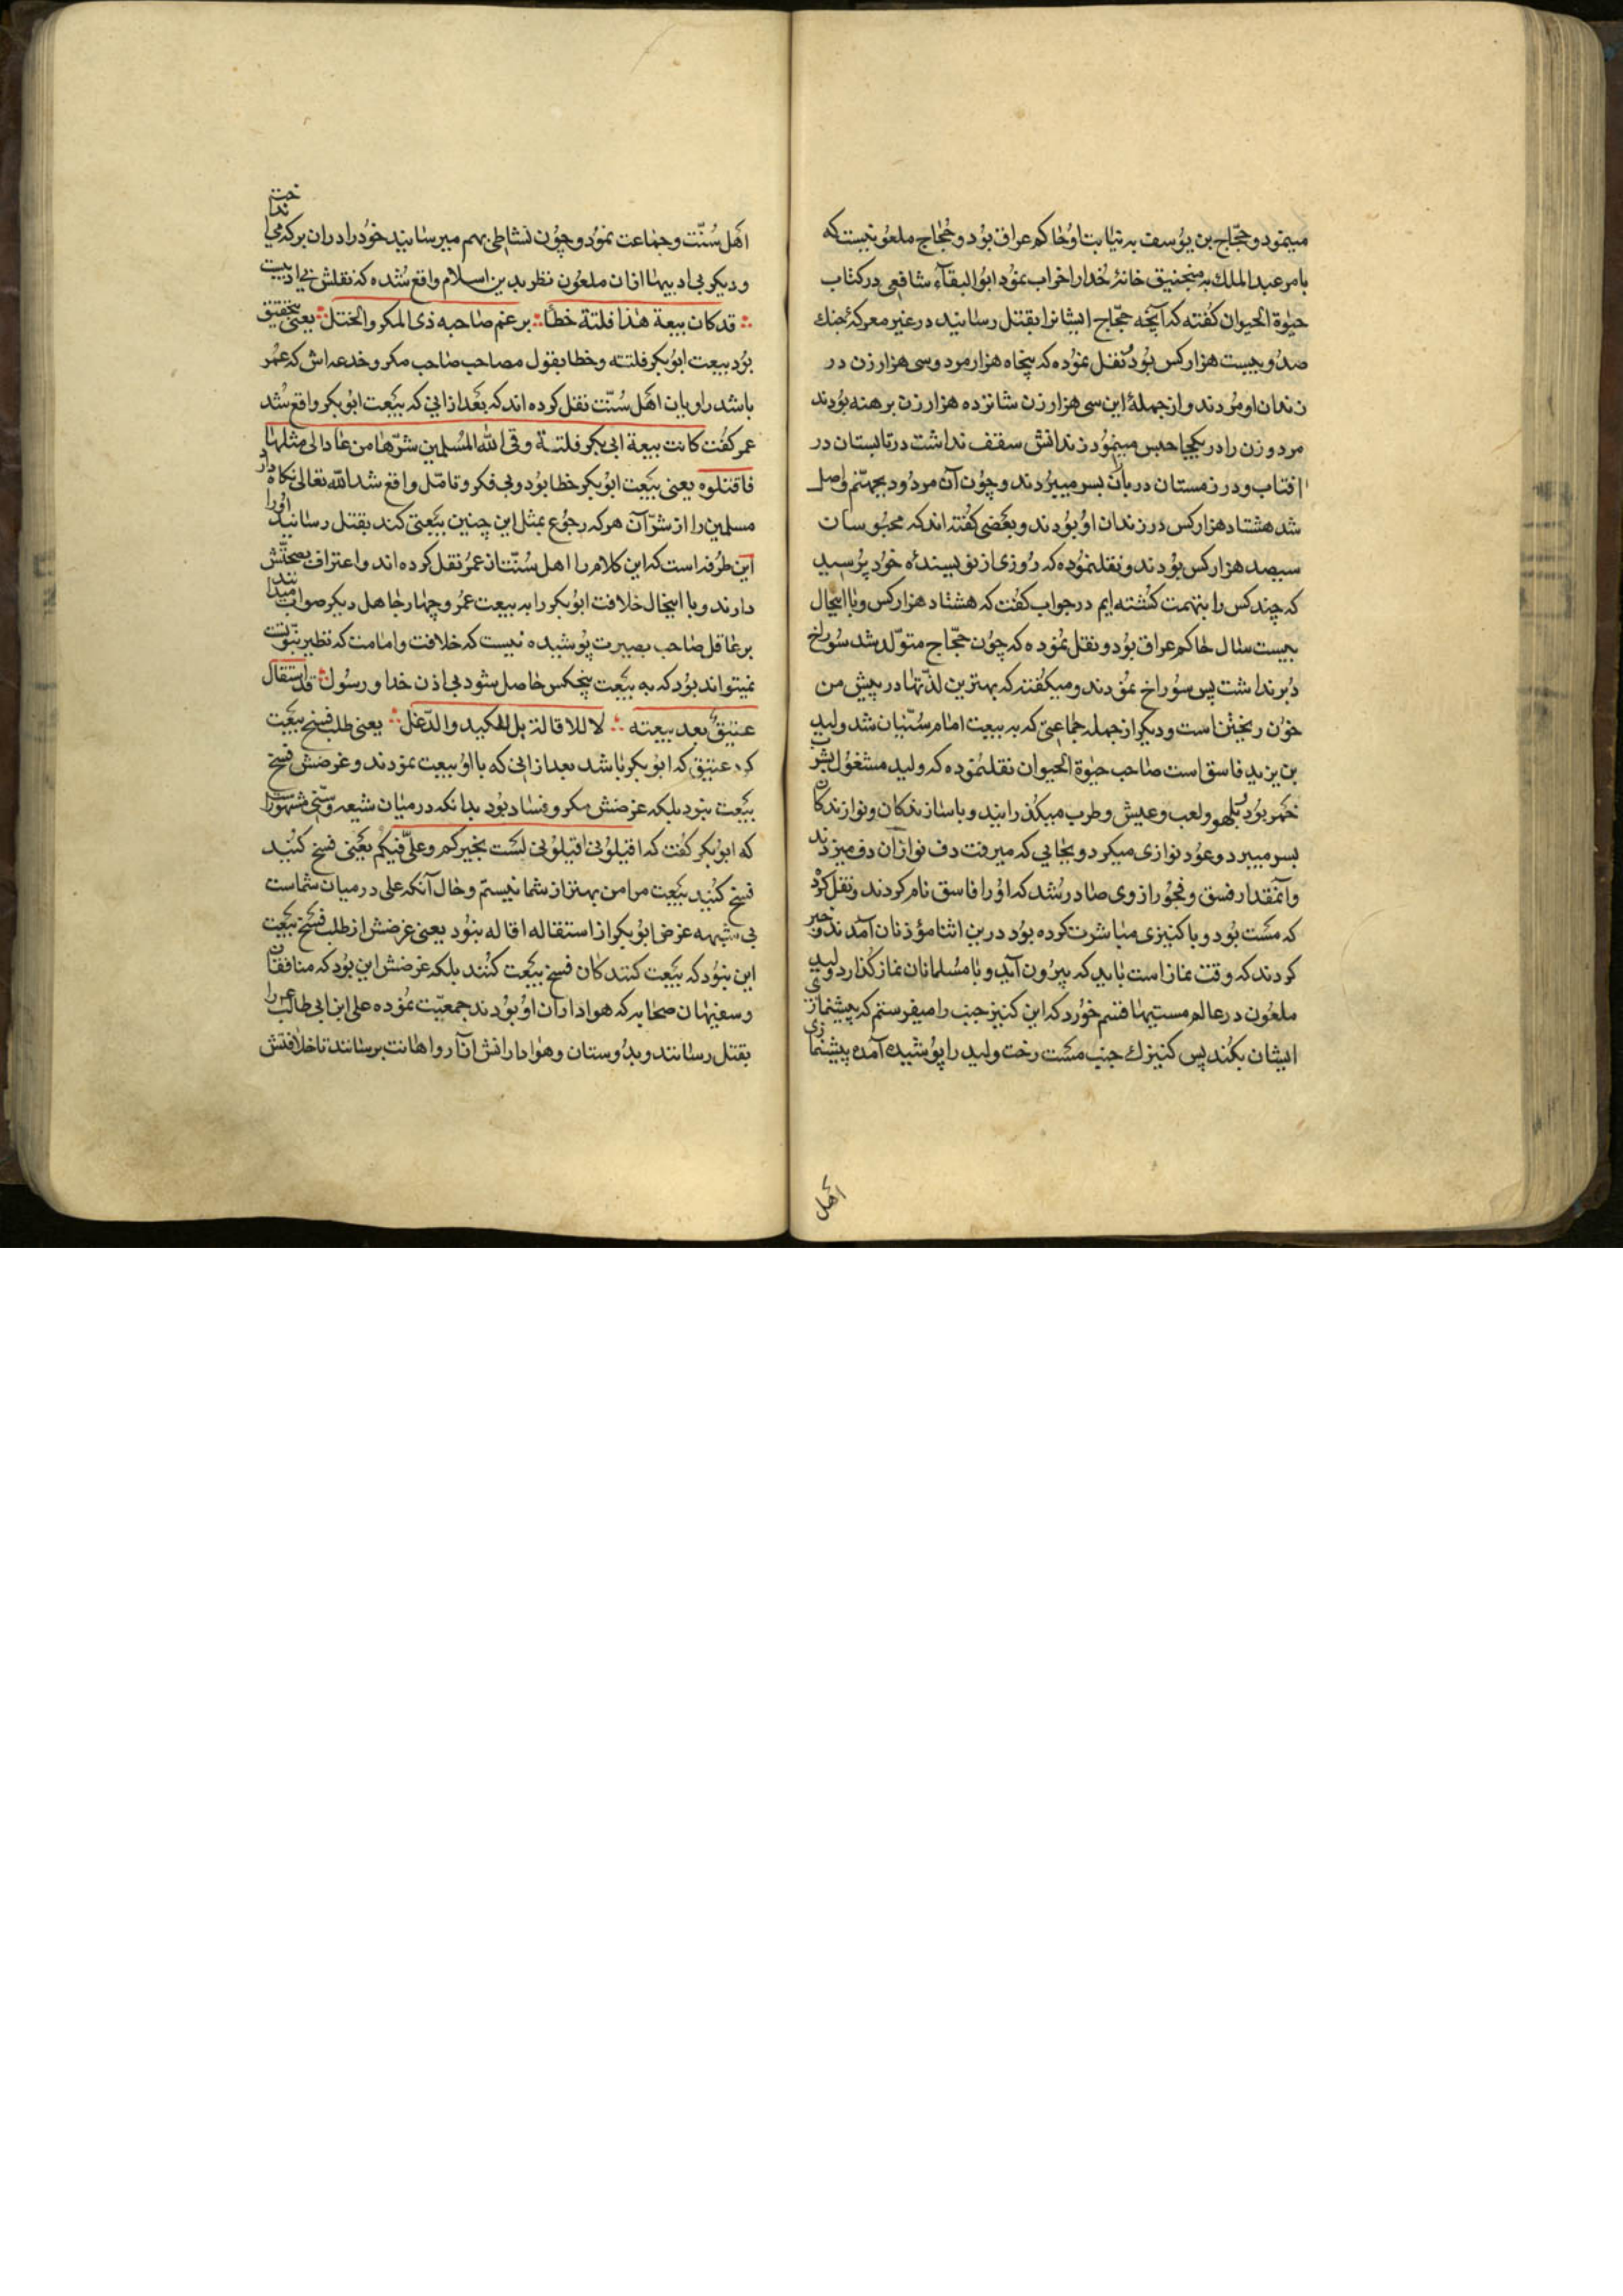 مینمود و حجّاج بن یوسف به نیابت او حاکم عراق بود و حجّاج ملعونیست که
بامر عبد الملك به منجنیق خانهٔ خدا را خراب نمود ابو البقاء شافعی در کتاب
حیوة الحیوان کفته که آنچه حجّاج ایشانرا بقتل رسانید در غیر معرکهٔ جنك
صد و بیست هزار کس بود و نقل نموده که پنجاه هزار مرد و سی هزار زن در
زندان او مردند و از جملهٔ این سی هزار زن شانزده هزار زن برهنه بودند
مرد و زن را در یکجا حبس مینمود زندانش سقف نداشت در تابستان در
افتاب و در زمستان در باران بسر میبردند و چون آن مردود بجهنّم واصل
شد هشتاد هزار کس در زندان او بودند و بعضی کفته اند که محبوسان
سیصد هزار کس بودند و نقلنموده که روزی از نویسندهٔ خود پرسید
که چند کس را بتهمت کشته ایم در جواب کفت که هشتاد هزار کس و با اینحال
بیست سال حاکم عراق بود و نقل نموده که چون حجّاج متولّد شد سوراخ
دبر نداشت پس سوراخ نمودند و میکفت که بهترین لذّتها در پیش من
خون ریختن است و دیکر از جمله جماعتی که به بیعت امام سنّیان شد ولید
بن یزید فاسق است صاحب حیوة الحیوان نقلنموده که ولید مشغول بشرب
خمر بود و بلهو و لعب و عیش و طرب میکذرانید و با سازندکان و نوازندکان
بسر میبرد و عود نوازی میکرد و بجایی که میرفت دف نوازان دف میزدند
و آنمقدار فسق و فجور از وی صادر شد که او را فاسق نام کردند و نقل کرد
که مست بود و با کنیزی مباشرت کرده بود درین اثنا مؤذنان آمدند و خبر
کردند که وقت نماز است باید که بیرون آید و با مسلمانان نماز کذارد ولید
ملعون در عالم مستیها قسم خورد که این کنیز جنب را میفرستم که پیشنمازی
ایشان بکند پس کنیزك جنب مست رخت ولید را پوشیده آمده پیشنمازی
اهل
اهل سنّت و جماعت نمود و چون نشاطی بهم میرسانید خود را در ان برکه می انداخت
و دیکر بی ادبیها از ان ملعون نظر بدین اسلام واقع شده که نقلش بی ادبیست
قد کان بیعة هذا فلتة خطأ برغم صاحبه ذی المکر والختل یعنی بتحقیق
بود بیعت ابو بکر فلتته و خطا بقول مصاحب صاحب مکر و خدعه اش که عمر
باشد راویان اهل سنّت نقل کرده اند که بعد از انی که بیعت ابو بکر واقع شد
عمر کفت کانت بیعة ابی بکر فلتة وقی الله المسلمین شرّها من عاد الی مثلها
فاقتلوه یعنی بیعت ابو بکر خطا بود و بی فکر و تامّل واقع شد الله تعالی نکاه دارد
مسلمین را از شرّ آن هر که رجوع بمثل این چنین بیعتی کند بقتل رسانید او را
این طرفه است که این کلام را اهل سنّت از عمر نقل کرده اند و اعتراف بصحّتش
دارند و با اینحال خلافت ابو بکر را به بیعت عمر و چهار جاهل دیکر صواب میدانند
بر عاقل صاحب بصیرت پوشیده نیست که خلافت و امامت که نظیر نبوّتست
نمیتواند بود که به بیعت پنجکس حاصل شود بی اذن خدا و رسول قد استقال
عتیق بعد بیعته لا للاقالة بل للکید والدّغل یعنی طلب فسخ بیعت
کرد عتیق که ابو بکر باشد بعد از انی که با او بیعت نمودند و غرضش فسخ
بیعت نبود بلکه غرضش مکر و فساد بود بدانکه در میان شیعه و سنّی مشهور است
که ابو بکر کفت که اقیلونی اقیلونی لست بخیرکم وعلیّ فیکم یعنی فسخ کنید
فسخ کنید بیعت مرا من بهتر از شما نیستم و حال آنکه علی در میان شماست
بی شبهه غرض ابو بکر از استقاله اقاله نبود یعنی غرضش از طلب فسخ بیعت
این نبود که بیعت کنندکان فسخ بیعت کنند بلکه غرضش این بود که منافقان
و سفیهان صحابه که هواداران او بودند جمعیّت نموده علی ابن ابی طالب را
بقتل رسانند و بدوستان و هوادارانش آزار و اهانت برسانند تا خلافتش